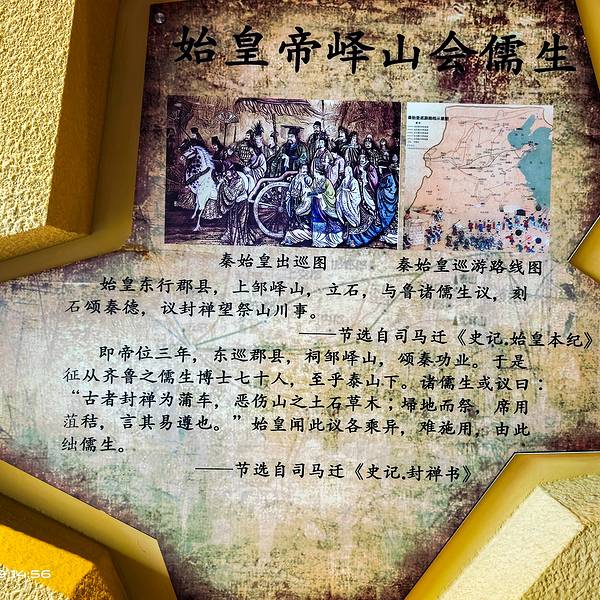 始皇帝峄山会儒生
秦始皇出巡图
秦始皇巡游路线图
始皇东行郡县，上邹峄山，立石，与鲁诸儒生议，刻
石颂秦德，议封禅望祭山川事。
——节选自司马迁《史记.始皇本纪》
即帝位三年，东巡郡县，祠邹峄山，颂秦功业。于是
征从齐鲁之儒生博士七十人，至乎泰山下。诸儒生或议曰：
“古者封禅为蒲车，恶伤山之土石草木；埽地而祭，席用
菹秸，言其易遵也。”始皇闻此议各乖异，难施用，由此
绌儒生。
——节选自司马迁《史记.封禅书》
14:56